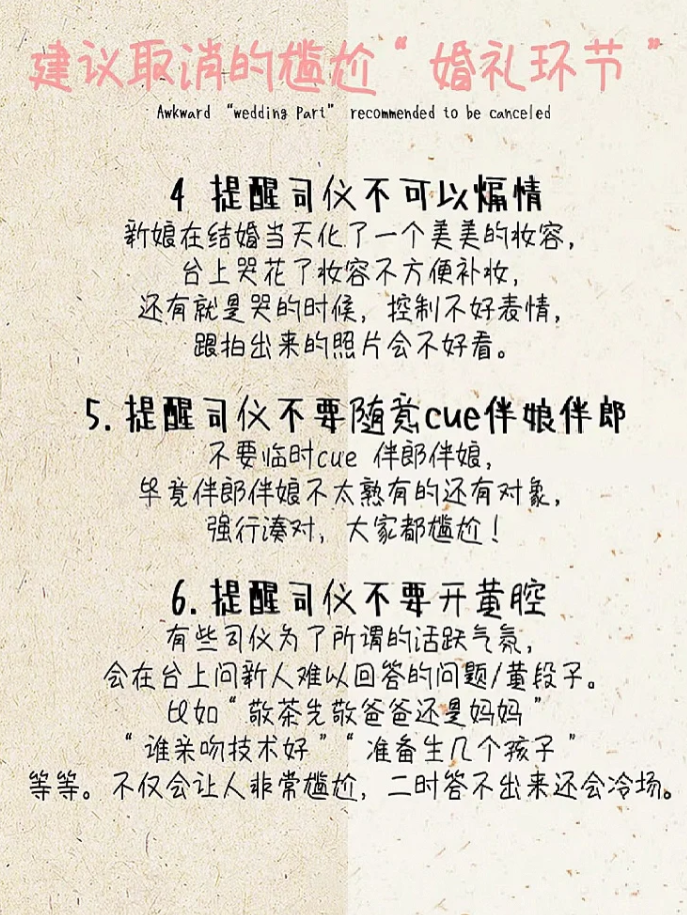 建议取消的尴尬“婚礼环节”
Awkward “wedding Part” recommended to be canceled
4 提醒司仪不可以煽情
新娘在结婚当天化了一个美美的妆容，
台上哭花了妆容不方便补妆，
还有就是哭的时候，控制不好表情，
跟拍出来的照片会不好看。
5.提醒司仪不要随意cue伴娘伴郎
不要临时cue 伴郎伴娘，
毕竟伴郎伴娘不太熟有的还有对象，
强行凑对，大家都尴尬！
6.提醒司仪不要开黄腔
有些司仪为了所谓的活跃气氛，
会在台上问新人难以回答的问题/黄段子。
比如“敬茶先敬爸爸还是妈妈”
“谁亲吻技术好”“准备生几个孩子”
等等。不仅会让人非常尴尬，二时答不出来还会冷场。